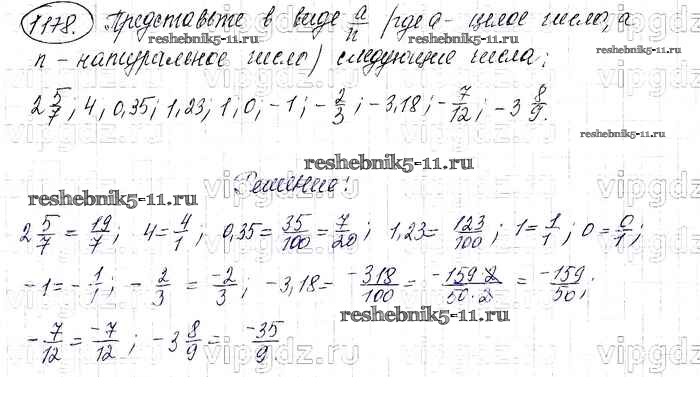 1178. Представьте в виде a/n (где a - целое число, а
reshebnik5-11.ru reshebnik5-11.ru
n - натуральное число) следующие числа:
2 5/7; 4; 0,35; 1,23; 1; 0; -1; -2/3; -3,18; -7/12; -3 8/9.
reshebnik5-11.ru
reshebnik5-11.ru
Решение:
reshebnik5-11.ru
2 5/7 = 19/7; 4 = 4/1; 0,35 = 35/100 = 7/20; 1,23 = 123/100; 1 = 1/1; 0 = 0/1;
-1 = -1/1; -2/3 = -2/3; -3,18 = -318/100 = -159·2/50·2 = -159/50;
reshebnik5-11.ru
-7/12 = -7/12; -3 8/9 = -35/9.
vipgdz.ru vipgdz.ru vipgdz.ru